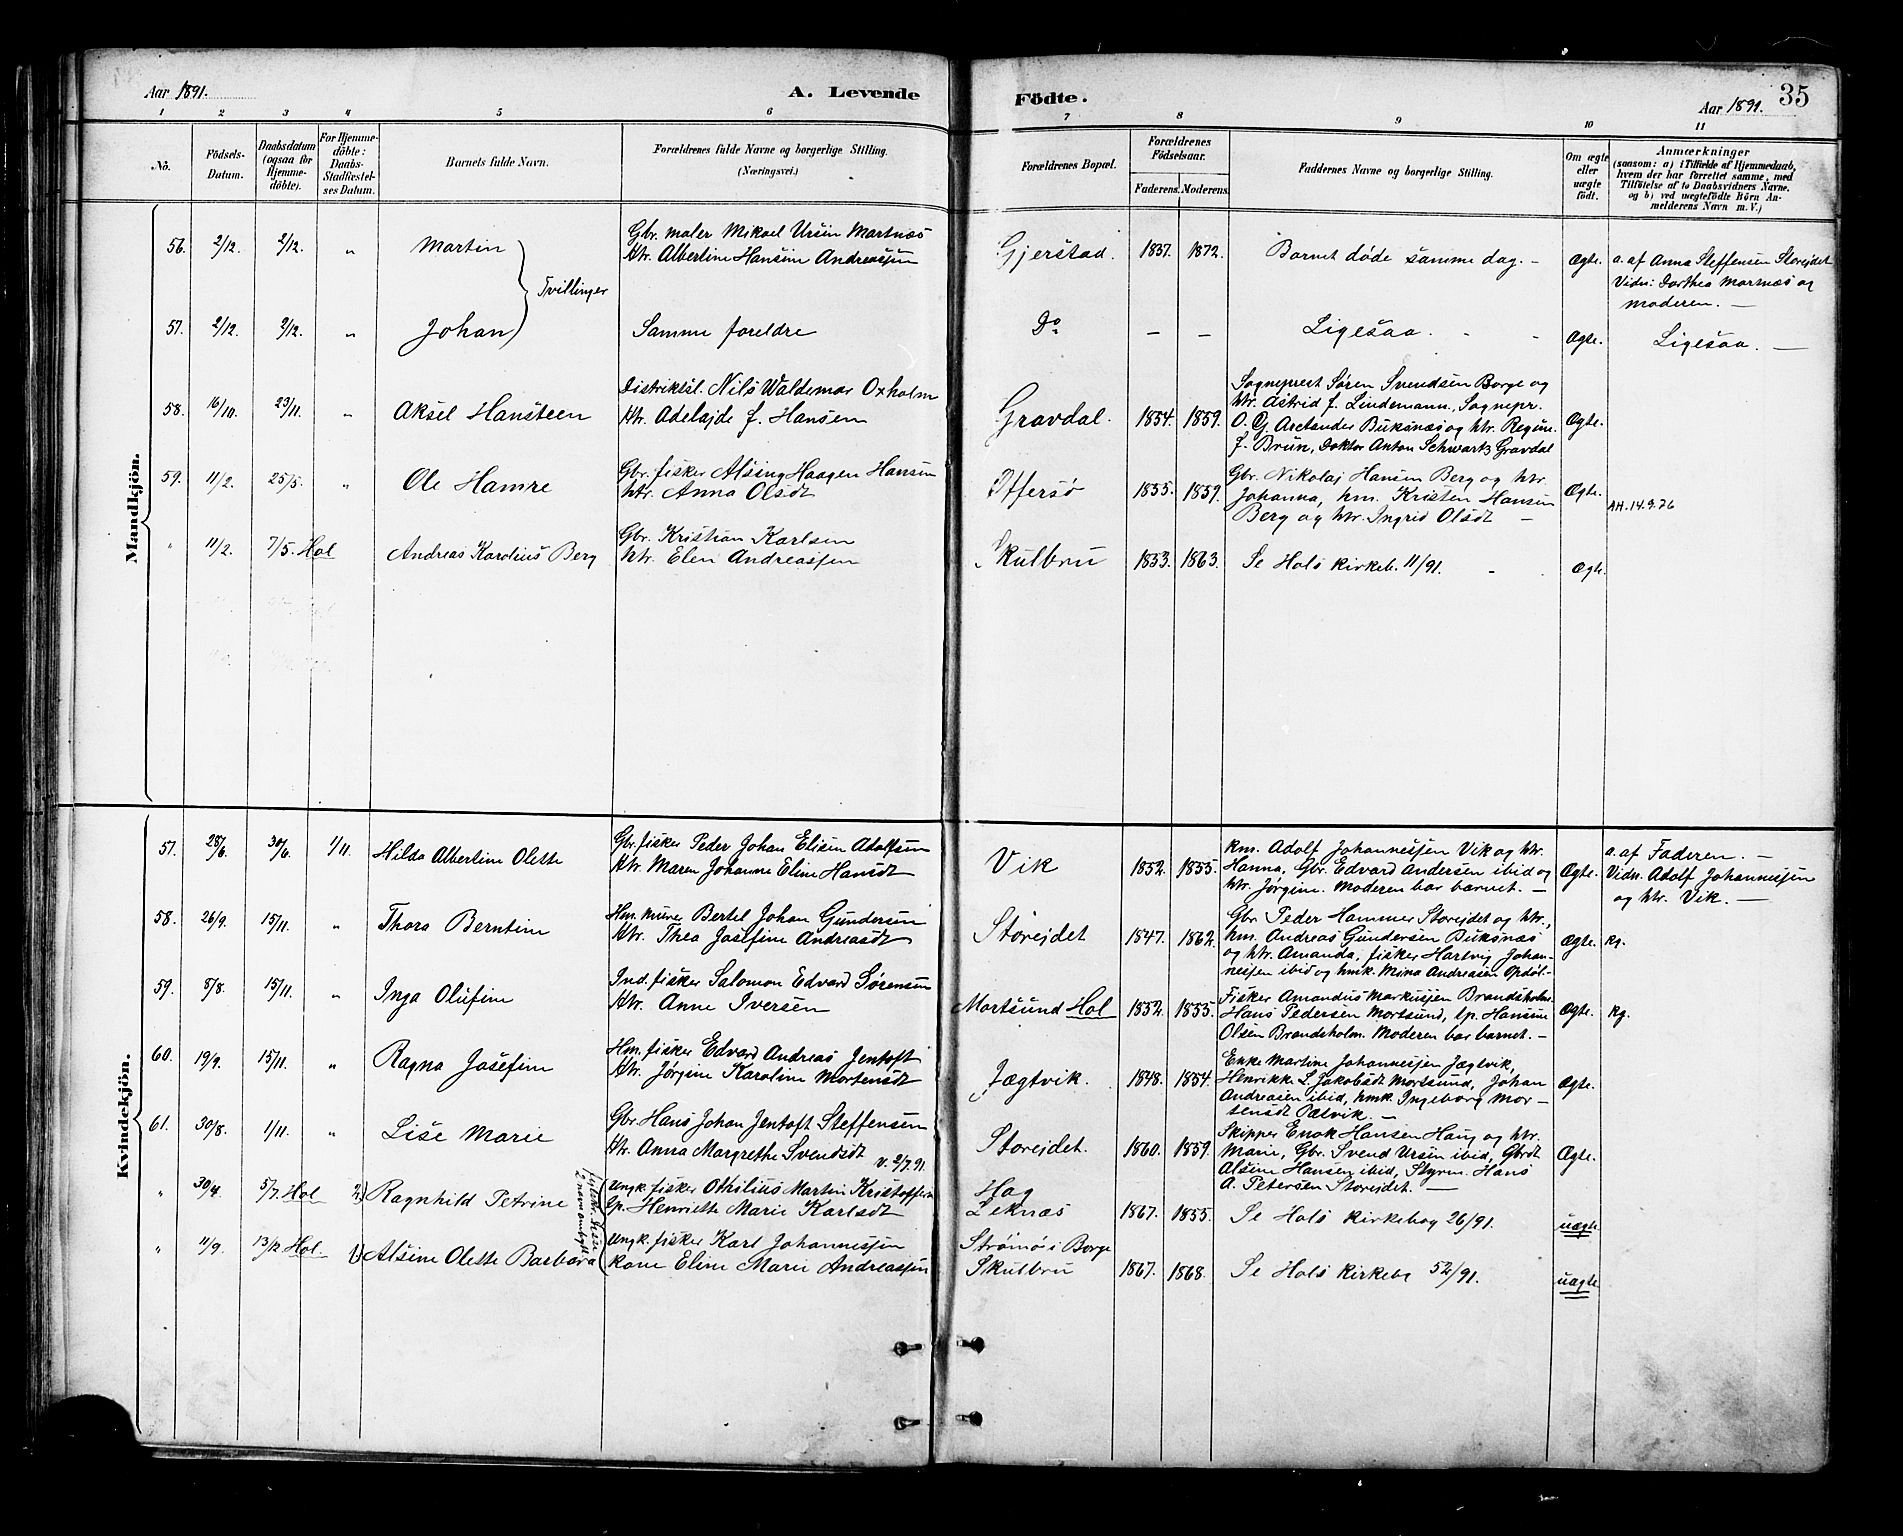 Aar 1891.
A. Levende
Födte.
Aar 1891.
35
1 2 3 4 5 6 7 8 9 10 11
No.
Födsels-Datum.
Daabsdatum (ogsaa for Hjemme-döbte).
For Hjemme-döbte: Daabs-Stadfæstel-ses Datum.
Barnets fulde Navn.
Forældrenes fulde Navne og borgerlige Stilling.
(Næringsvei.)
Forældrenes Bopæl.
Forældrenes Födselsaar.
Faderens. Moderens.
Faddernes Navne og borgerlige Stilling.
Om ægte eller uægte födt.
Anmærkninger
(saasom: a) i Tilfælde af Hjemmedaab, hvem der har forrettet samme, med Tilföielse af to Daabsvidners Navne, og b) ved uægtefödte Börn An-melderens Navn m. V.)
Mandkjön.
56. 2/12. 2/12. " Martin
Tvillinger
Gbr. maler Mikael Ursin Martnæs
Htr. Albertine Hansine Andreassen
Gjerstad. 1837. 1872. Barnet døde samme dag. - Ægte. a. af Anna Steffensen Storejdet
Vidn: Dorthea Martnæs og
moderen. —
57. 2/12. 2/12. " Johan
Samme foreldre
Do — — Ligesaa. - Ægte. Ligesaa. —
58. 16/10. 23/11. " Aksel Hansteen
Distriktsl. Nils Waldemar Oxholm
Htr. Adelajde f. Hansen
Gravdal. 1854. 1859.
Sogneprest Søren Svendsen Borge og
htr. Astrid f. Lindemann, Sognepr.
O. G. Arctander Buksnæs og htr. Regine
f. Brun, Doktor Anton Schwartz Gravdal
Ægte.
59. 11/2. 25/5. " Ole Hamre
Gbr. fisker Alsing Haagen Hansen
htr. Anna Olsdt
Offersø 1855. 1859.
Gbr. Nikolaj Hansen Berg og htr.
Johanna, hm. Kristen Hansen
Berg og htr. Ingrid Olsdt —
Ægte. AH. 14.9.76
" 11/2. 7/5. Hol Andreas Karolius Berg
Gbr. Kristian Karlsen
htr. Elen Andreassen
Skulbru 1853. 1863. Se Hols kirkeb. 11/91. - Ægte.
Kvindekjön.
57. 28/6. 30/6. 1/11. Hilda Albertine Olette
Gbr. fisker Peder Johan Elisen Adolfsen
Htr. Maren Johanne Eline Hansdt
Vik 1852. 1855.
km. Adolf Johannessen Vik og htr.
Hanna, Gbr. Edvard Andersen ibid og
htr. Jørgine. Moderen bar barnet. —
Ægte.
a. af Faderen. —
Vidn. Adolf Johannessen
og htr. Vik. —
58. 26/9. 15/11. " Thora Berntine
Hm. murer Bertel Johan Gundersen
Htr. Thea Josefine Andreasdt
Storejdet 1847. 1862.
Gbr Peder Hammer Storejdet og htr,
hm. Andreas Gundersen Buksnæs
og htr. Amanda, fisker Hartvig Johan-
nessen ibid og hmk. Mina Andreasen Opdøl-
Ægte. kg.
59. 5/8. 15/11. " Inga Olufine
Ind. fisker Salomon Edvard Sørensen
Htr. Anne Iversen
Mortsund Hol 1852. 1855.
Fisker Amandus Markussen Brandsholm.
Hans Pedersen Mortsund, tp. Hansine
Olsen Brandsholm. Moderen bar barnet. —
Ægte. kg.
60. 19/9. 15/11. " Ragna Josefine
Hm. fisker Edvard Andreas Jentoft
Htr. Jørgine Karoline Mortensdt
Jægtvik. 1848. 1854.
Enke Martine Johannessen Jægtvik,
Henrikke L. Jakobsdt Mortsund, Johan
Andreasen ibid, hmk. Ingeborg Mor-
tensdt Pætvik. —
Ægte.
61. 30/8. 1/11. " Lise Marie
Gbr. Hans Johan Jentoft Steffensen
Htr. Anna Margrethe Svendsdt
v. 2/7.91.
Storejdet. 1860. 1859.
Skipper Enok Hansen Haug og htr.
Marie, Gbr. Svend Ursin ibid, Gbrdt
Alsine Hansen ibid, Styrm. Hans
A. Petersen Storejdet. —
Ægte.
" 30/4. 5/7. Hol 2) Ragnhild Petrine
Ungk. fisker Othilius Martin Kristoffersen
tp. Henriette Marie Karlsdt
Hag
Leknæs 1867. 1855. Se Hols kirkebog 26/91. uægte
" 11/9. 13/12 Hol 1) Alsine Olette Barbara
Ungk. fisker Karl Johannessen
kone Eline Marie Andreassen
Strømø i Borge
Skulbru 1867. 1868. Se Hols kirkebg 52/91. uægte